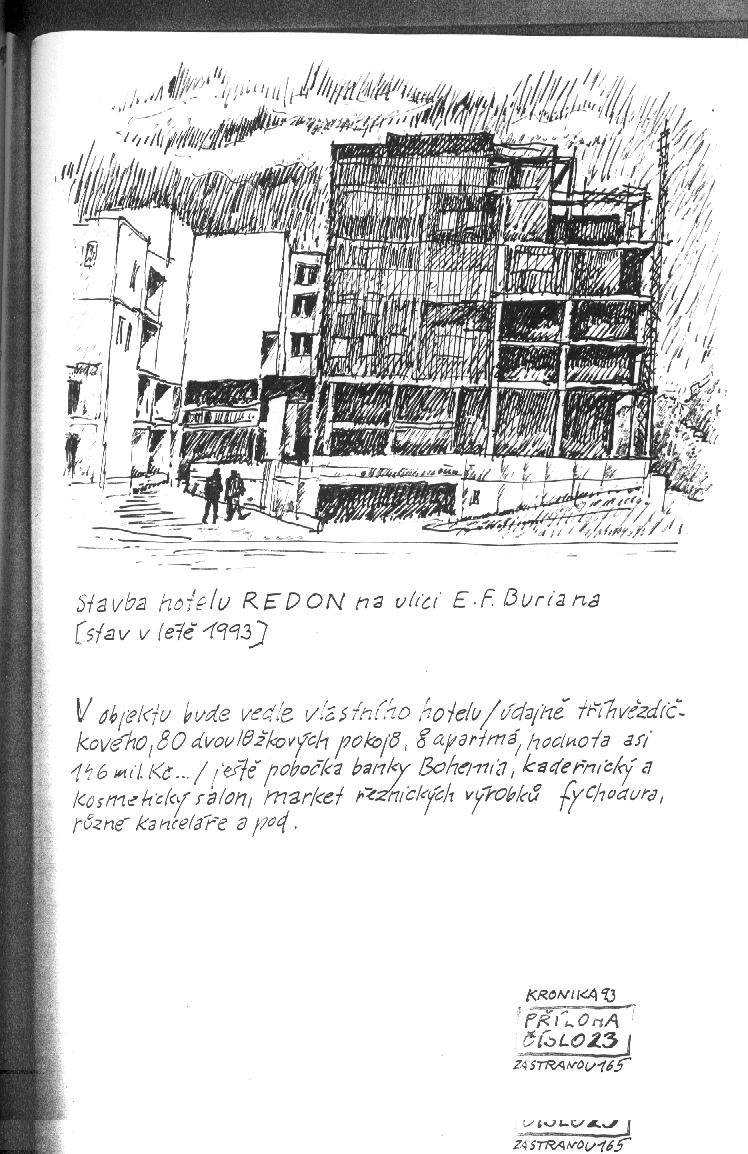 Stavba hotelu REDON na ulici E.F. Buriana
[stav v létě 1993]
V objektu bude vedle vlastního hotelu/údajně tříhvězdič-
kového, 80 dvoulůžkových pokojů, 8 apartmá, hodnota asi
146 mil. Kč.../ ještě pobočka banky Bohemia, kadeřnický a
kosmetický salon, market řeznických výrobků fy Chodura,
různé kanceláře a pod.
KRONIKA 93
PŘÍLOHA
ČÍSLO 23
ZA STRANOU 165
ČÍSLO 23
ZA STRANOU 165